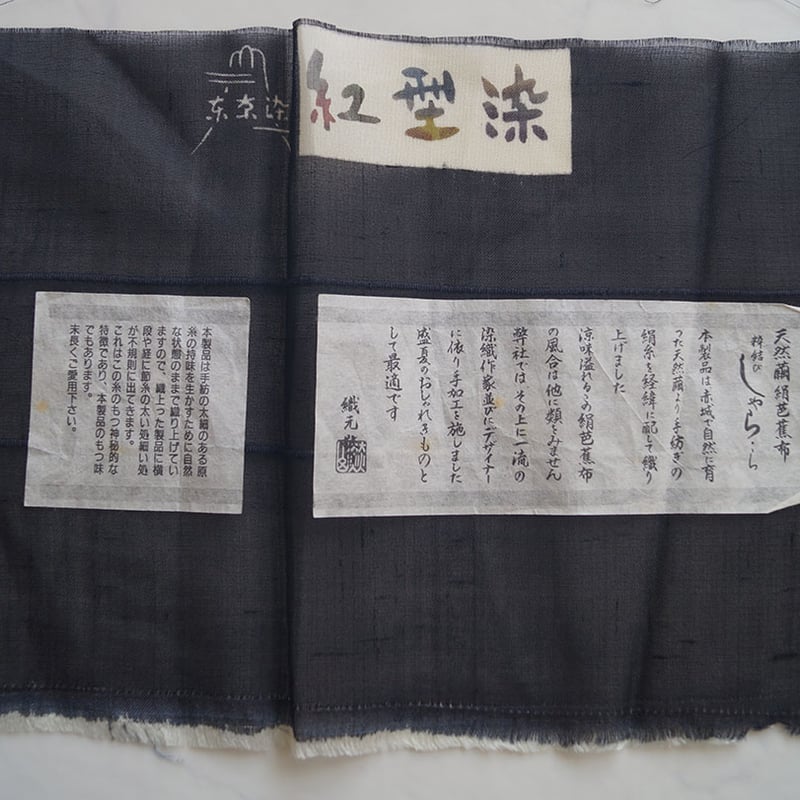 紅型染
东京染
天然繭絹芭蕉布
粋結び
しゃらら
本製品は赤城で自然に育
った天然繭より手紡ぎの
絹糸を経緯に配して織り
上げました
涼味溢れるこの絹芭蕉布
の風合は他に類をみません
弊社では その上に一流の
染織作家並びにデザイナー
に依り手加工を施しました
盛夏のおしゃれきものと
して最適です
織元
本製品は手紡の太細のある原
糸の持味を生かすために自然
な状態のままで織り上げてい
ますので、織上った製品に横
段や経に節糸の太い処細い処
が不規則に出てきます。
これはこの糸のもつ神秘的な
特徴であり、本製品のもつ味
でもあります。
末長くご愛用下さい。